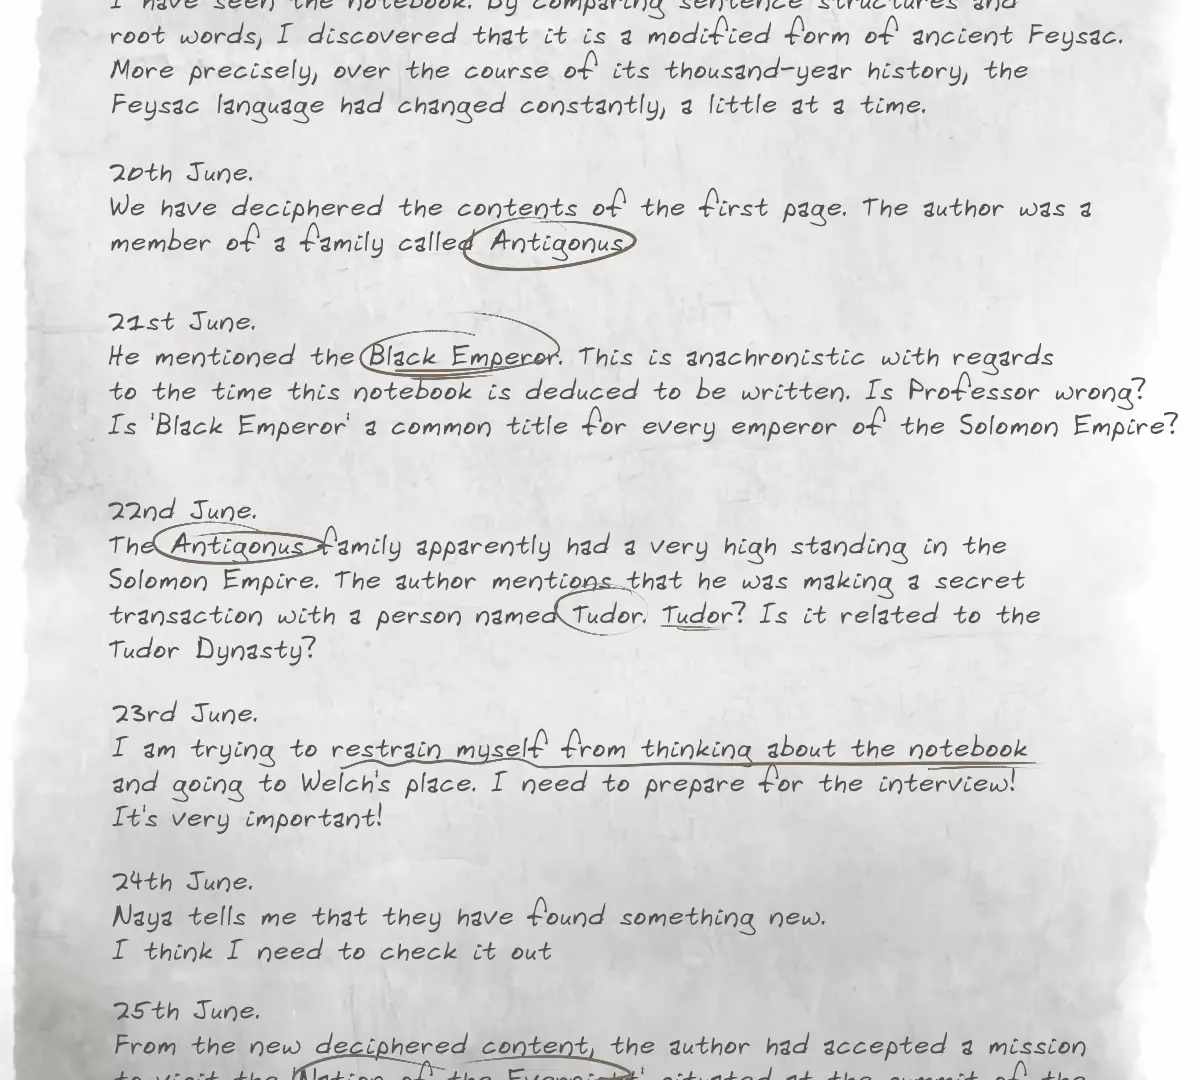 I have seen the notebook. By comparing sentence structures and
root words, I discovered that it is a modified form of ancient Feysac.
More precisely, over the course of its thousand-year history, the
Feysac language had changed constantly, a little at a time.
20th June.
We have deciphered the contents of the first page. The author was a
member of a family called Antigonus
21st June.
He mentioned the Black Emperor. This is anachronistic with regards
to the time this notebook is deduced to be written. Is Professor wrong?
Is 'Black Emperor' a common title for every emperor of the Solomon Empire?
22nd June.
The Antigonus family apparently had a very high standing in the
Solomon Empire. The author mentions that he was making a secret
transaction with a person named Tudor. Tudor? Is it related to the
Tudor Dynasty?
23rd June.
I am trying to restrain myself from thinking about the notebook
and going to Welch's place. I need to prepare for the interview!
It's very important!
24th June.
Naya tells me that they have found something new.
I think I need to check it out
25th June.
From the new deciphered content, the author had accepted a mission
to visit the 'Nation of the Evernight' situated at the summit of the